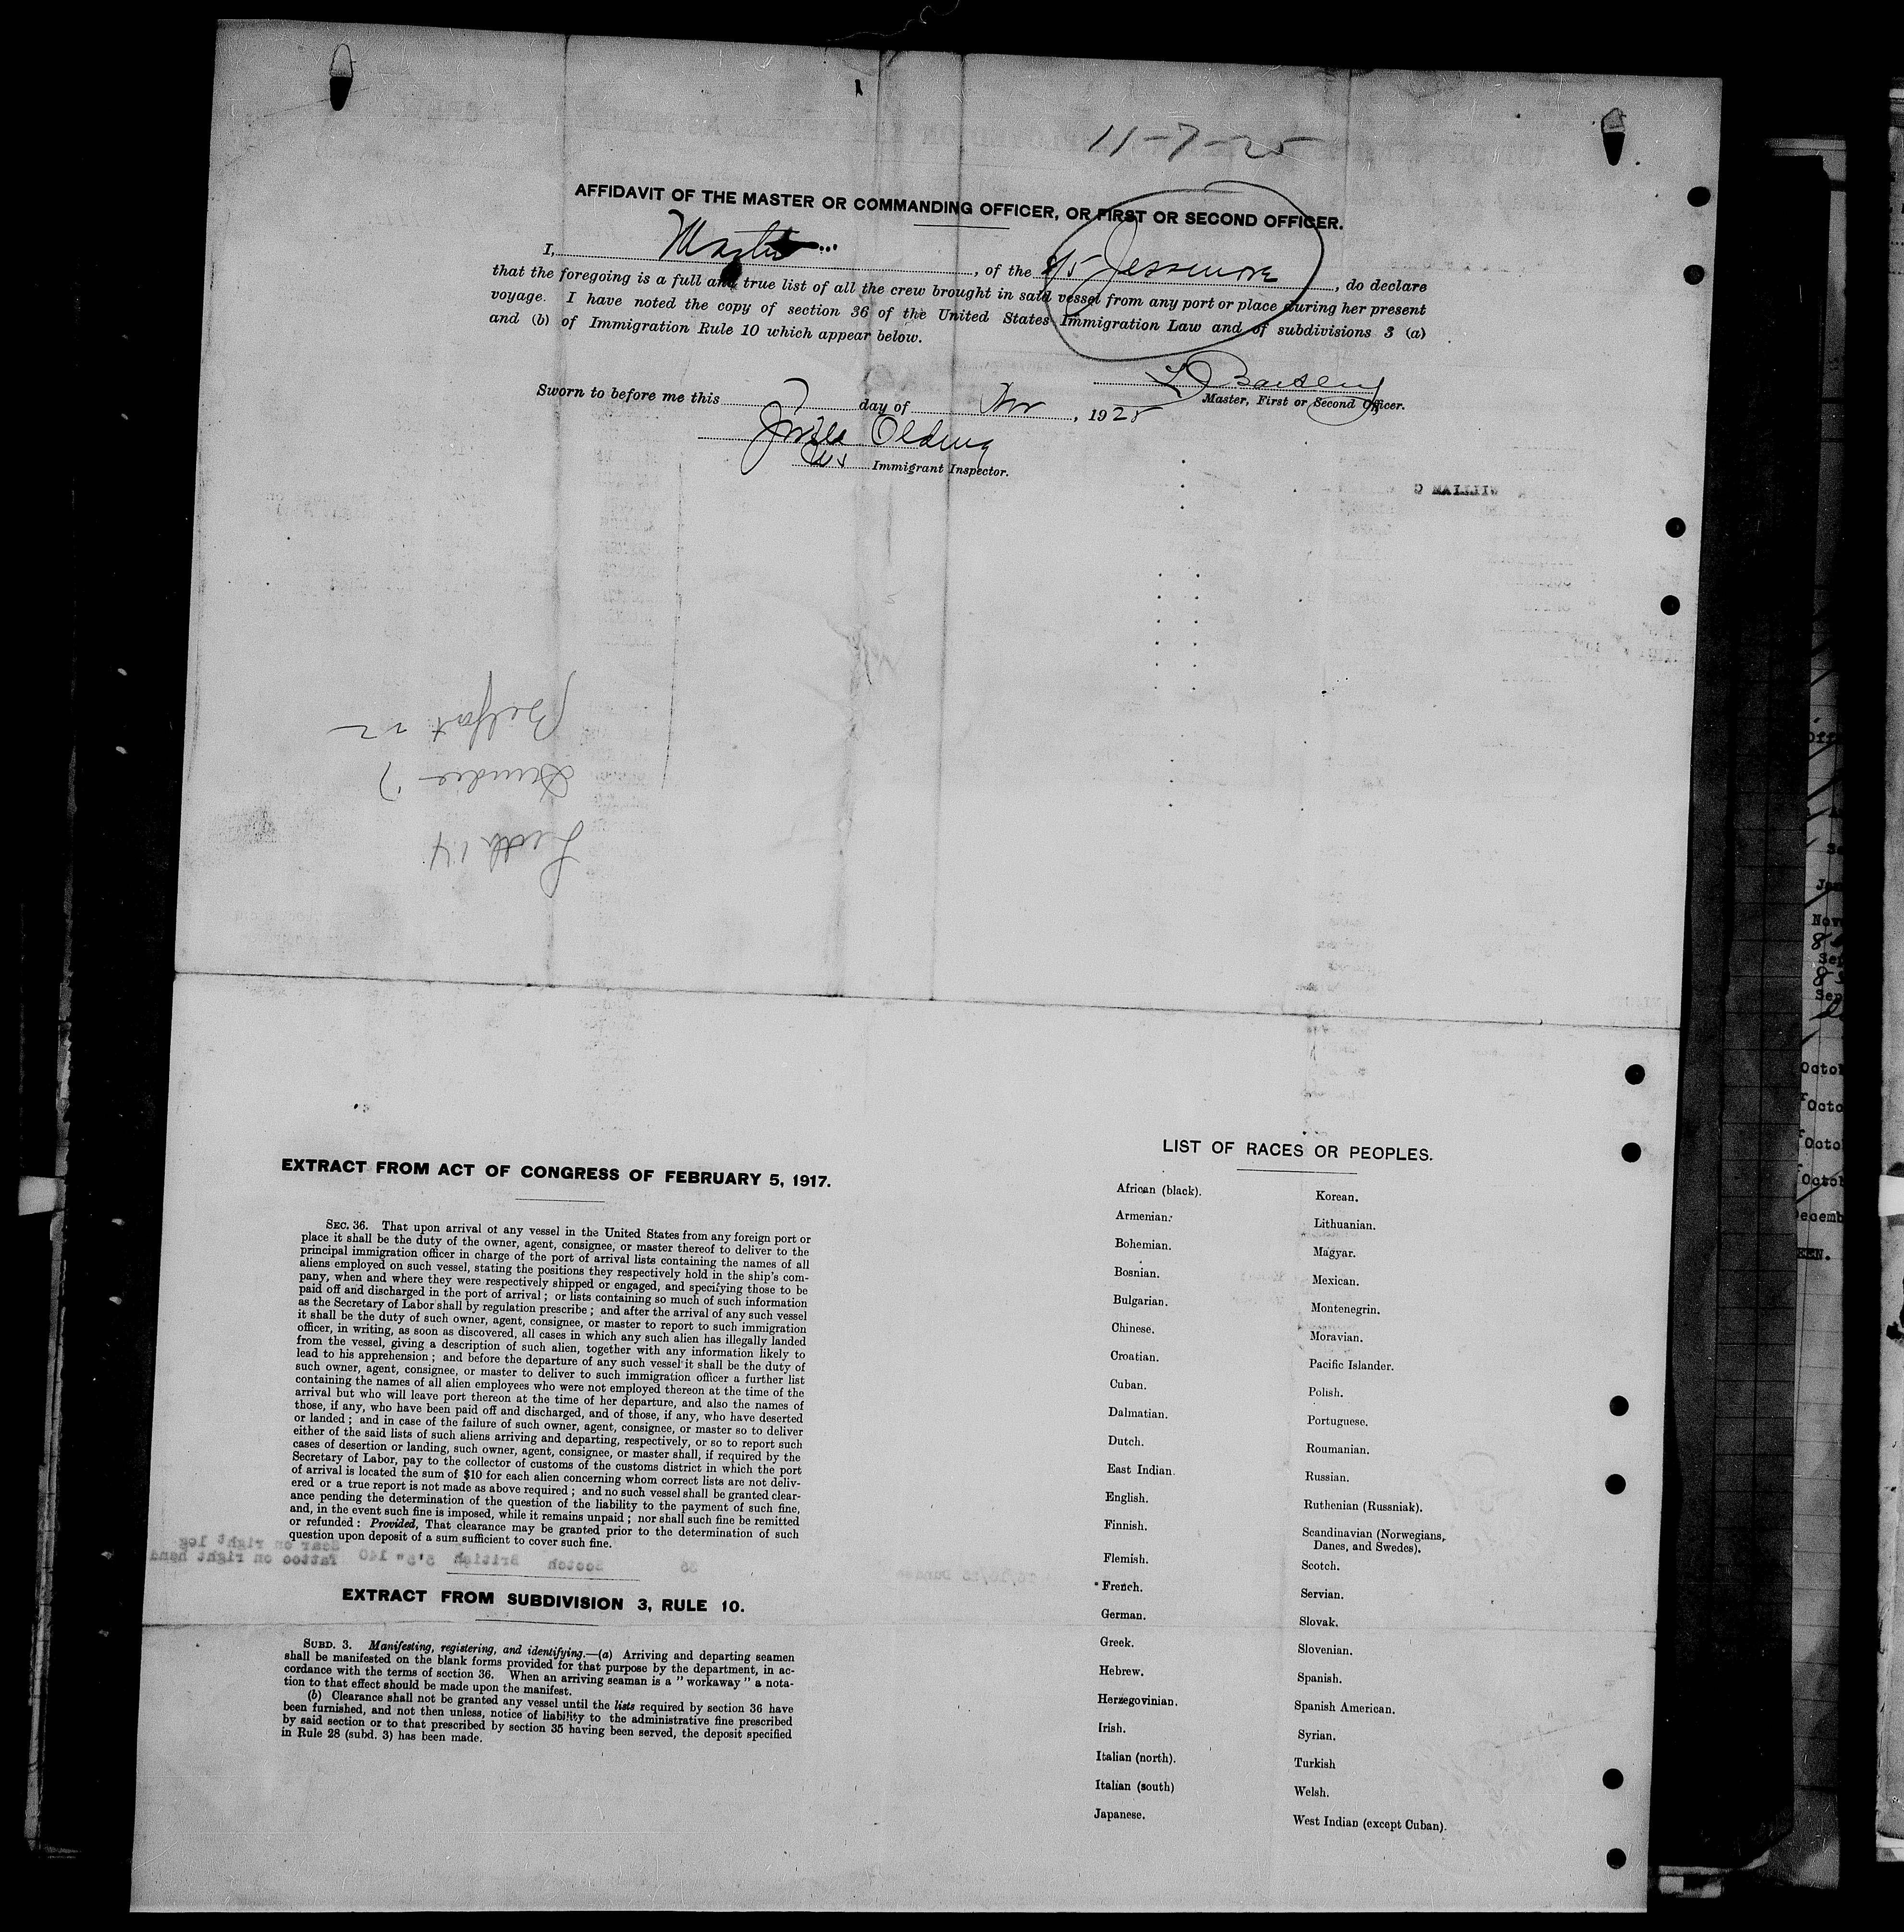 11-7-25
AFFIDAVIT OF THE MASTER OR COMMANDING OFFICER, OR FIRST OR SECOND OFFICER.
I, Master, of the S/S Jessmore, do declare
that the foregoing is a full and true list of all the crew brought in said vessel from any port or place during her present
voyage. I have noted the copy of section 36 of the United States Immigration Law and of subdivisions 3 (a)
and (b) of Immigration Rule 10 which appear below.
Master, First or Second Officer.
Sworn to before me this 7 day of Nov, 1925
Olding
Immigrant Inspector.
WILLIAM G
Belfast 22
Dundee 7
Leith 14
EXTRACT FROM ACT OF CONGRESS OF FEBRUARY 5, 1917.
SEC. 36. That upon arrival of any vessel in the United States from any foreign port or
place it shall be the duty of the owner, agent, consignee, or master thereof to deliver to the
principal immigration officer in charge of the port of arrival lists containing the names of all
aliens employed on such vessel, stating the positions they respectively hold in the ship's com-
pany, when and where they were respectively shipped or engaged, and specifying those to be
paid off and discharged in the port of arrival; or lists containing so much of such information
as the Secretary of Labor shall by regulation prescribe; and after the arrival of any such vessel
it shall be the duty of such owner, agent, consignee, or master to report to such immigration
officer, in writing, as soon as discovered, all cases in which any such alien has illegally landed
from the vessel, giving a description of such alien, together with any information likely to
lead to his apprehension; and before the departure of any such vessel it shall be the duty of
such owner, agent, consignee, or master to deliver to such immigration officer a further list
containing the names of all alien employees who were not employed thereon at the time of the
arrival but who will leave port thereon at the time of her departure, and also the names of
those, if any, who have been paid off and discharged, and of those, if any, who have deserted
or landed; and in case of the failure of such owner, agent, consignee, or master so to deliver
either of the said lists of such aliens arriving and departing, respectively, or so to report such
cases of desertion or landing, such owner, agent, consignee, or master shall, if required by the
Secretary of Labor, pay to the collector of customs of the customs district in which the port
of arrival is located the sum of $10 for each alien concerning whom correct lists are not deliv-
ered or a true report is not made as above required; and no such vessel shall be granted clear-
ance pending the determination of the question of the liability to the payment of such fine,
and, in the event such fine is imposed, while it remains unpaid; nor shall such fine be remitted
or refunded: Provided, That clearance may be granted prior to the determination of such
question upon deposit of a sum sufficient to cover such fine.
Scar on right leg
35 Scotch British 5'5" 140 Tattoo on right hand
EXTRACT FROM SUBDIVISION 3, RULE 10.
SUBD. 3. Manifesting, registering, and identifying.—(a) Arriving and departing seamen
shall be manifested on the blank forms provided for that purpose by the department, in ac-
cordance with the terms of section 36. When an arriving seaman is a "workaway" a nota-
tion to that effect should be made upon the manifest.
(b) Clearance shall not be granted any vessel until the lists required by section 36 have
been furnished, and not then unless, notice of liability to the administrative fine prescribed
by said section or to that prescribed by section 35 having been served, the deposit specified
in Rule 28 (subd. 3) has been made.
LIST OF RACES OR PEOPLES.
African (black).
Armenian.
Bohemian.
Bosnian.
Bulgarian.
Chinese.
Croatian.
Cuban.
Dalmatian.
Dutch.
East Indian
English.
Finnish.
Flemish.
French.
German.
Greek.
Hebrew.
Herzegovinian.
Irish.
Italian (north).
Italian (south)
Japanese.
Korean.
Lithuanian.
Magyar.
Mexican.
Montenegrin.
Moravian.
Pacific Islander.
Polish.
Portuguese.
Roumanian.
Russian.
Ruthenian (Russniak).
Scandinavian (Norwegians,
Danes, and Swedes).
Scotch.
Servian.
Slovak.
Slovenian.
Spanish.
Spanish American.
Syrian.
Turkish
Welsh.
West Indian (except Cuban).